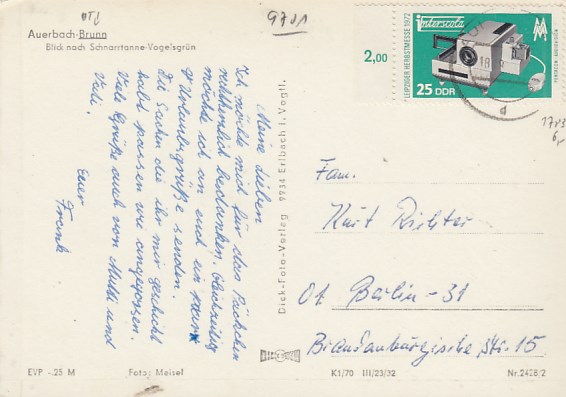 OTJ
9701
Auerbach-Brunn
Blick nach Schnarrtanne-Vogelsgrün
2,00
LEIPZIGER HERBSTMESSE 1972
interscola
MM
PENTACON-AUDIVISION
25 DDR
18
d
1783
6,-
Meine Lieben
Ich möchte mich für das Päckchen
recht herzlich bedanken. Gleichzeitig
möchte ich an euch ein paar
Urlaubsgrüße senden.
Die Sachen die ihr mir geschickt
habt passen wie angegossen.
Viele Grüße auch von Mutti und
Vati.
Euer
Frank
Dick-Foto-Verlag 9934 Erlbach i. Vogtl.
Fam.
Kurt Richter
01 Berlin-31
Brandenburgische Str. 15
EVP -.25 M
Foto: Meisel
K1/70 III/23/32
Nr. 2428/2